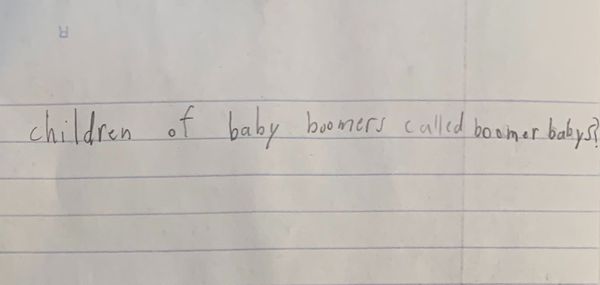 children of baby boomers called boomer babys?